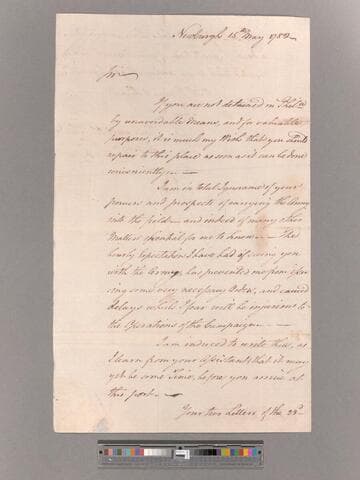 Newburgh 15th May 1782
Sir
If you are not detained in Phila
by unavoidable means, and for valuable
purposes, it is much my Wish that you should
repair to this place as soon as it can be done
conveniently.
I am in total Ignorance of your
powers and prospects of carrying the Army
into the field – and indeed of many other
Matters essential for me to know. – The
hourly expectation I have had of seeing you
with the Army, has prevented me from
ing some very necessary Orders, and caused
delays which I fear will be injurious to
the Operations of the Campaign.
I am induced to write this, as
I learn from your Assistants that it may
yet be some Time, before you arrive at
this post.
Your two Letters of the 28th